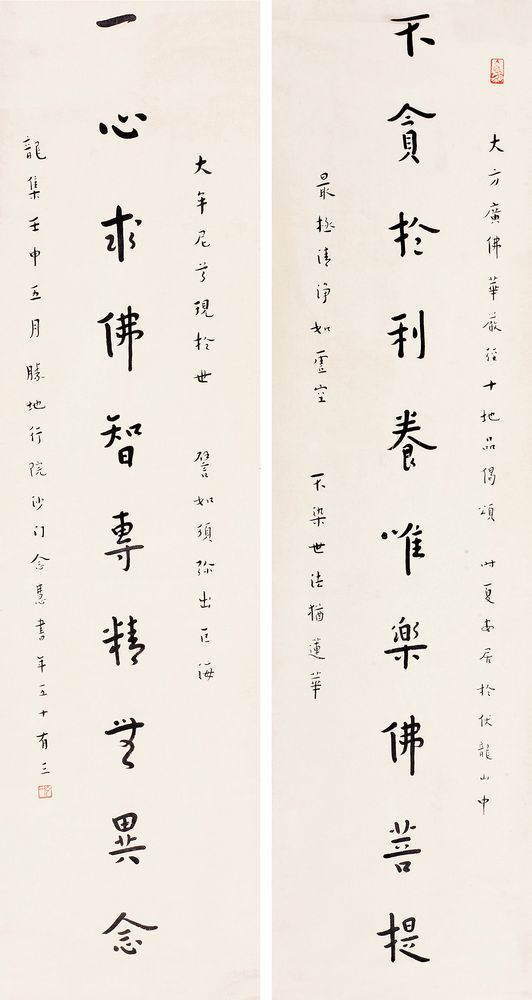 大方廣佛華嚴經十地品偈頌 時夏安居於伏龍山中
不貪於利養唯樂佛菩提
最極清淨如虛空 不染世法猶蓮華
大牟尼尊現於世 譬如須彌出巨海
一心求佛智專精無異念
龍集壬申五月勝地行院沙门念慧書年五十有三